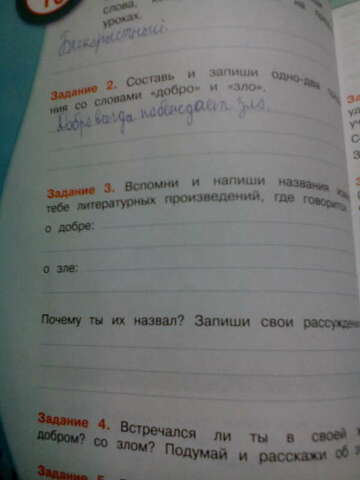 слова,
уроках.
Бескорыстный.
Задание 2. Составь и запиши одно-два
ния со словами «добро» и «зло».
Добро всегда побеждает зло.
Задание 3. Вспомни и напиши названия
тебе литературных произведений, где говорится
о добре:
о зле:
Почему ты их назвал? Запиши свои рассужде
Задание 4. Встречался ли ты в своей
добром? со злом? Подумай и расскажи об э
Задание 5.